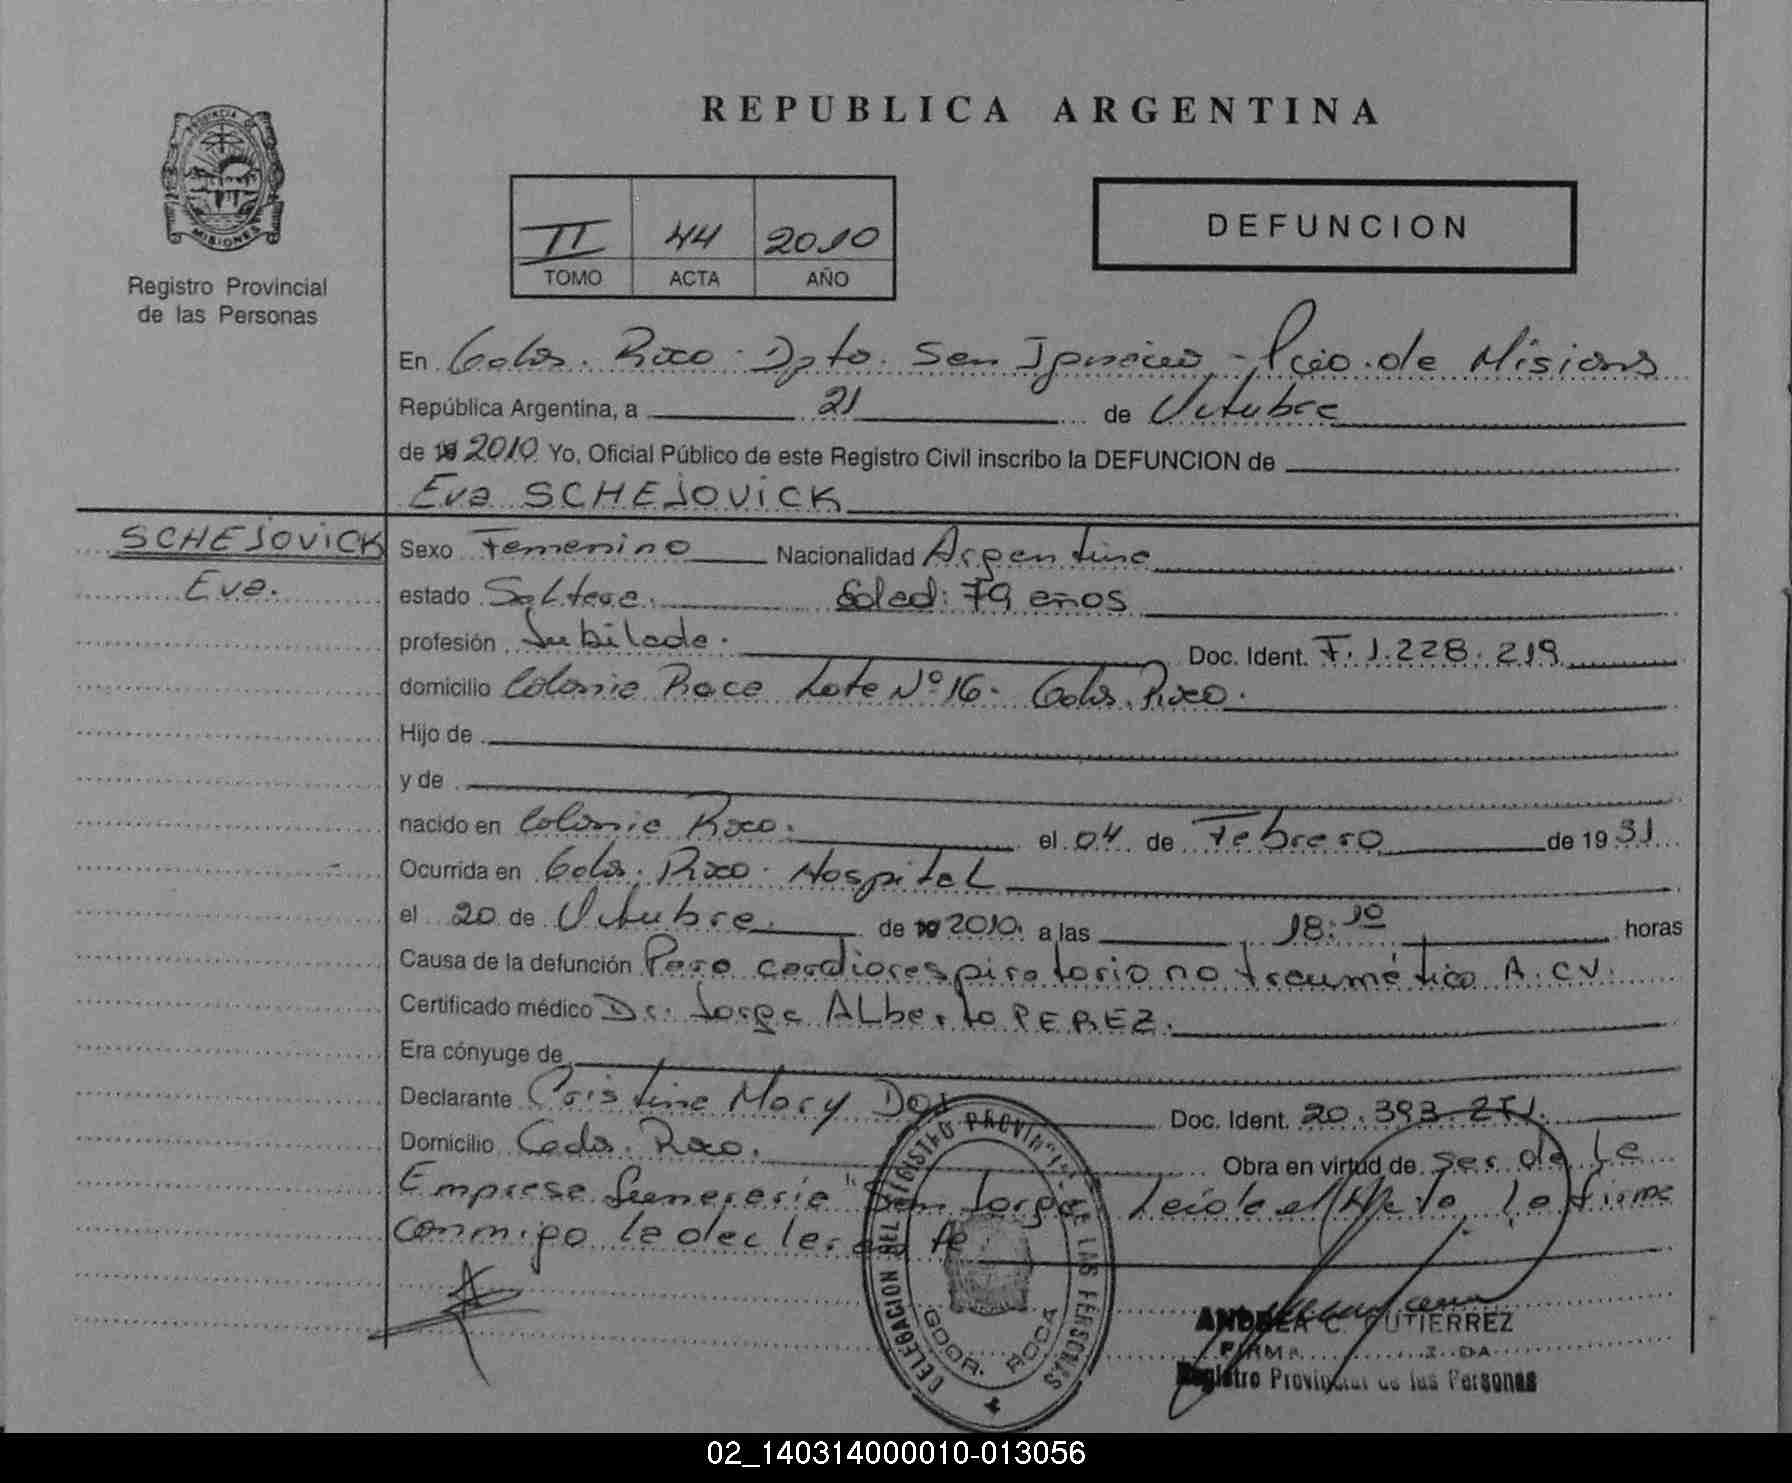 REPUBLICA ARGENTINA
PROVINCIA DE
MISIONES
Registro Provincial
de las Personas
II 44 2010
TOMO ACTA AÑO
DEFUNCION
En Gobor. Roca. Dpto. San Ignacio - Pcia. de Misions
República Argentina, a 21 de Octubre
de 19 2010. Yo, Oficial Público de este Registro Civil inscribo la DEFUNCION de
Eva SCHEJOVICK
SCHEJOVICK
Eva.
Sexo Femenino Nacionalidad Argentina
estado Soltera. Edad: 79 años
profesión Jubilada. Doc. Ident. F. 1.228.219
domicilio Colonia Roca Lote Nº 16. Gobor. Roca.
Hijo de
y de
nacido en Colonia Roca. el 04 de Febrero de 1931
Ocurrida en Gobor. Roca. Hospital
el 20 de Octubre. de 19 2010. a las 18:10 horas
Causa de la defunción Paro cardiorespiratorio no traumático A.C.V.
Certificado médico Dr. Jorge ALberto PEREZ.
Era cónyuge de
Declarante Cristina Mary Doc. Ident. 20.393.
Domicilio Roca. Obra en virtud de ser de La
Empresa funeraria "San Jorge" Leída el Acta La firma
conmigo la declarante
DELEGACION DEL REGISTRO PROVINCIAL DE LAS PERSONAS
GDOR. ROCA
ANDREA C. GUTIERREZ
FIRMA
Registro Provincial de las Personas
02_140314000010-013056